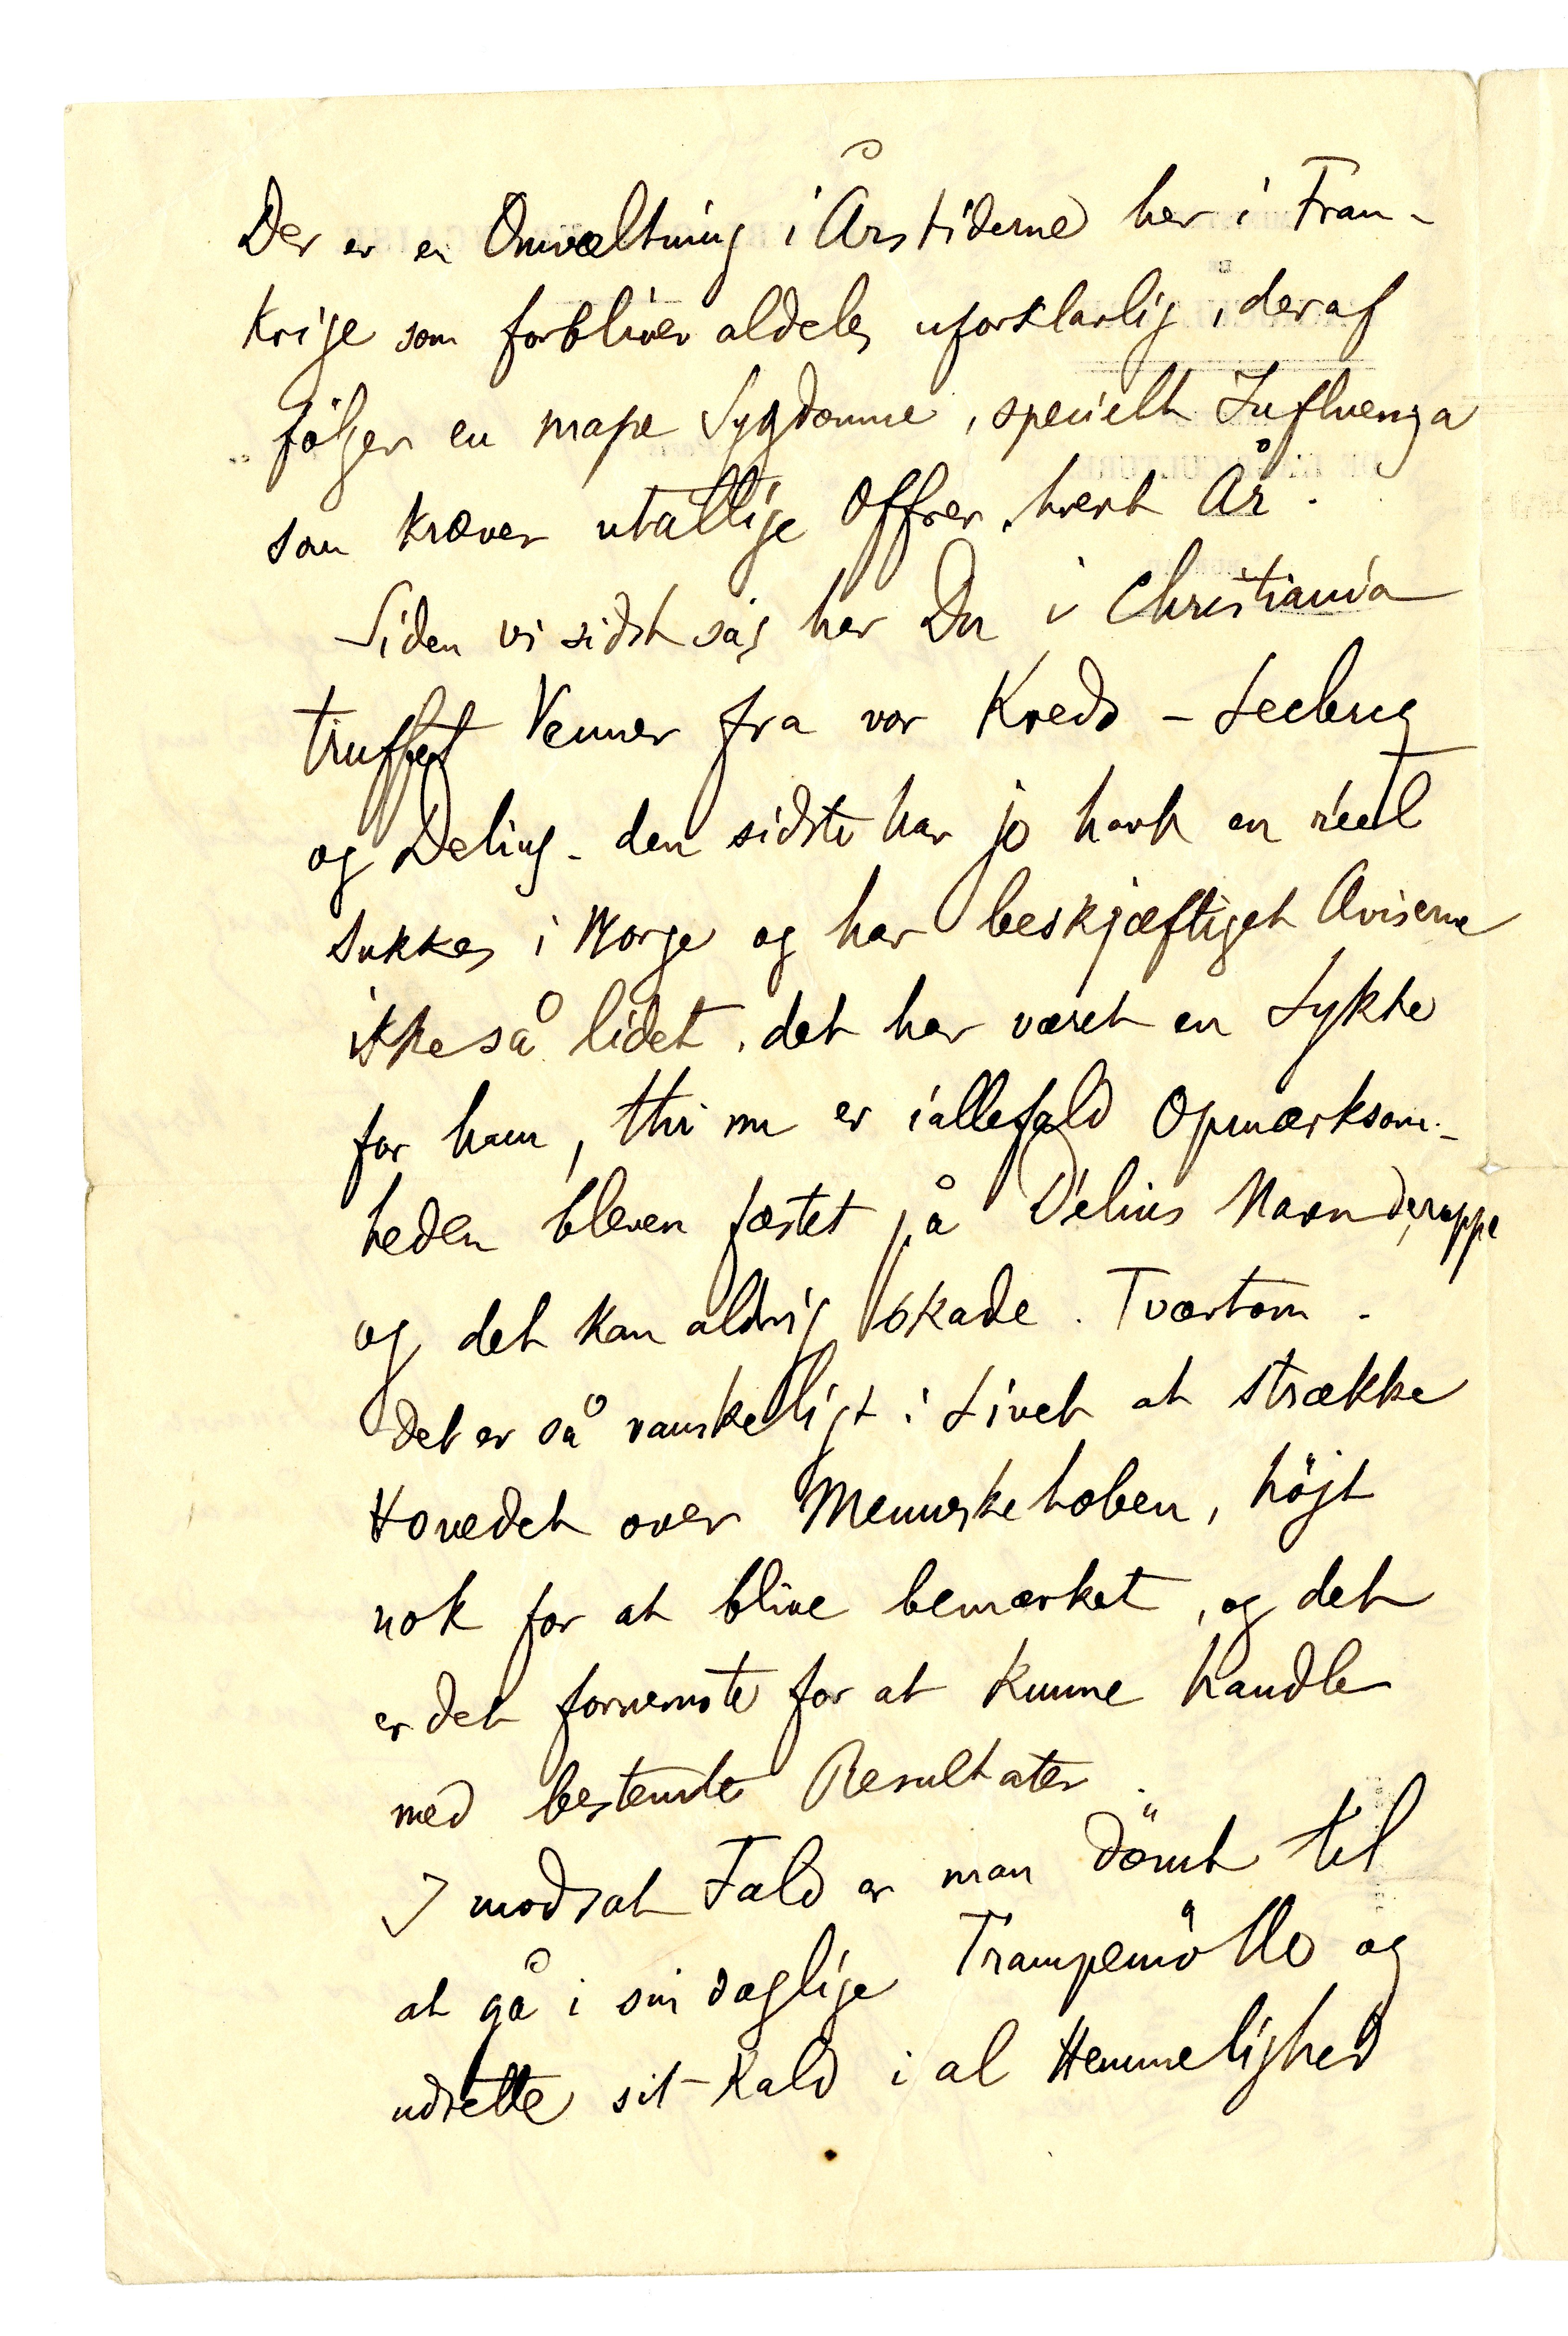 Der er en Omvæltning i Årstiderne her i Fran-
krige som forbliver aldeles uforklarlig, deraf
følger en masse Sygdomme, specielt Influenza
som kræver utallige Offrer hvert År.
Siden vi sidst sås har Du i Christiania
truffet Venner fra vor Kreds - Leclercq
og Delius - den sidste har jo havt en réel
Sukkes i Norge og har beskjæftiget Aviserne
ikke så lidet, det har været en Lykke
for ham, thi nu er iallefald Opmærksom-
heden bleven fæstet på Délius Navn deroppe
og det kan aldrig skade. Tværtom.
det er så vanskeligt i Livet at strække
Hovedet over Menneskehoben, höjt
nok for at blive bemærket, og det
er det fornemste for at kunne handle
med bestemte Resultater.
I modsat Fald er man dömt til
at gå i sin daglige Trampemölle og
udrette sit Kald i al Hemmelighed